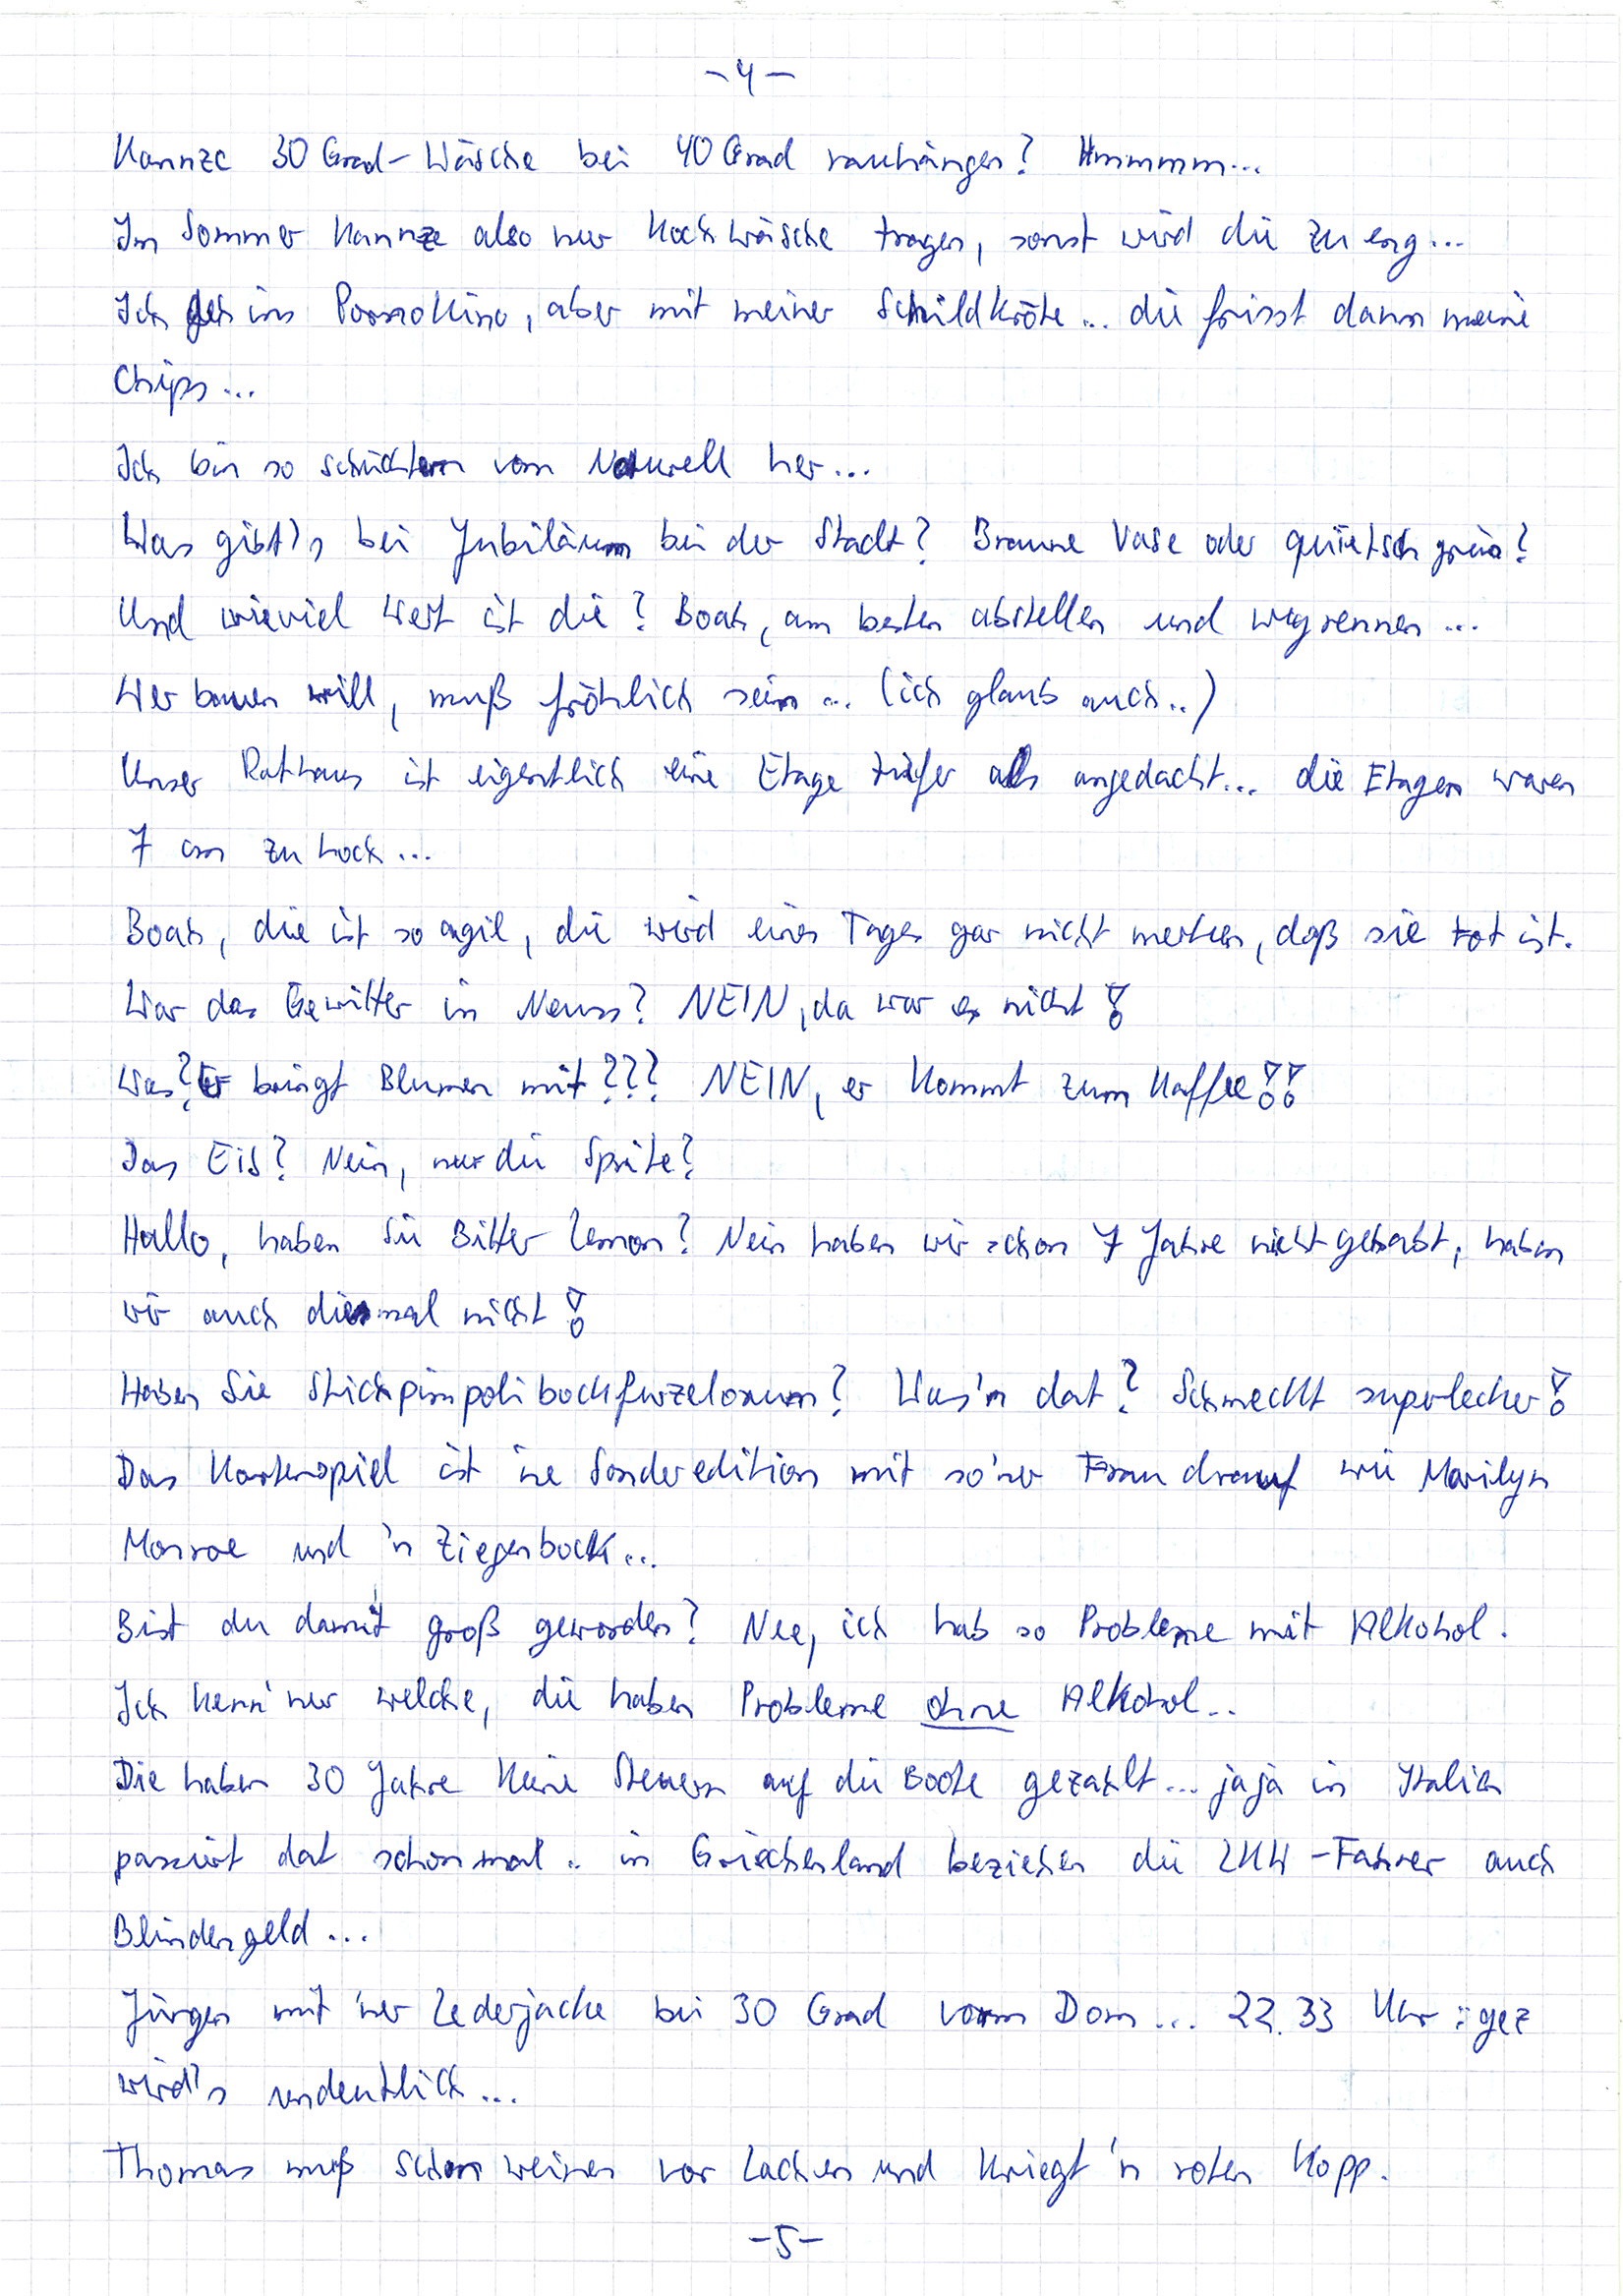 -4-
Kannze 30 Grad-Wäsche bei 40 Grad raushängen? Hmmmm...
Im Sommer kannze also nur Kochwäsche tragen, sonst wird die zu eng...
Ich geh ins Pornokino, aber mit meiner Schildkröte... die frisst dann meine
Chips...
Ich bin so schüchtern vom Naturell her...
Was gibt's bei Jubiläum bei der Stadt? Braune Vase oder quietsch grün?
Und wieviel Wert ist die? Boah, am besten abstellen und wegrennen...
Wer bauen will, muß fröhlich sein... (ich glaub auch..)
Unser Rathaus ist eigentlich eine Etage tiefer als angedacht... die Etagen waren
7 cm zu hoch...
Boah, die ist so agil, die wird eines Tages gar nicht merken, daß sie tot ist.
War das Gewitter in Neuss? NEIN, da war es nicht!
Was? Er bringt Blumen mit??? NEIN, er kommt zum Kaffee!!
Das Eis? Nein, nur die Sprite?
Hallo, haben Sie Bitter Lemon? Nein haben wir schon 7 Jahre nicht gehabt, haben
wir auch diesmal nicht!
Haben Sie Stickpimpolibockfurzelorum? Was'n dat? Schmeckt superlecker!
Das Kartenspiel ist ne Sonderedition mit so'ner Frau drauf wie Marilyn
Monroe und 'n Ziegenbock...
Bist du damit groß geworden? Nee, ich hab so Probleme mit Alkohol.
Ich kenn' nur welche, die haben Probleme ohne Alkohol..
Die haben 30 Jahre keine Steuern auf die Boote gezahlt... jaja in Italien
passiert dat schonmal.. in Griechenland beziehen die LKW-Fahrer auch
Blindengeld...
Jürgen mit 'ner Lederjacke bei 30 Grad vorm Dom... 22.33 Uhr : gez
wird's undeutlich...
Thomas muß schon weinen vor Lachen und kriegt 'n roten Kopp.
-5-